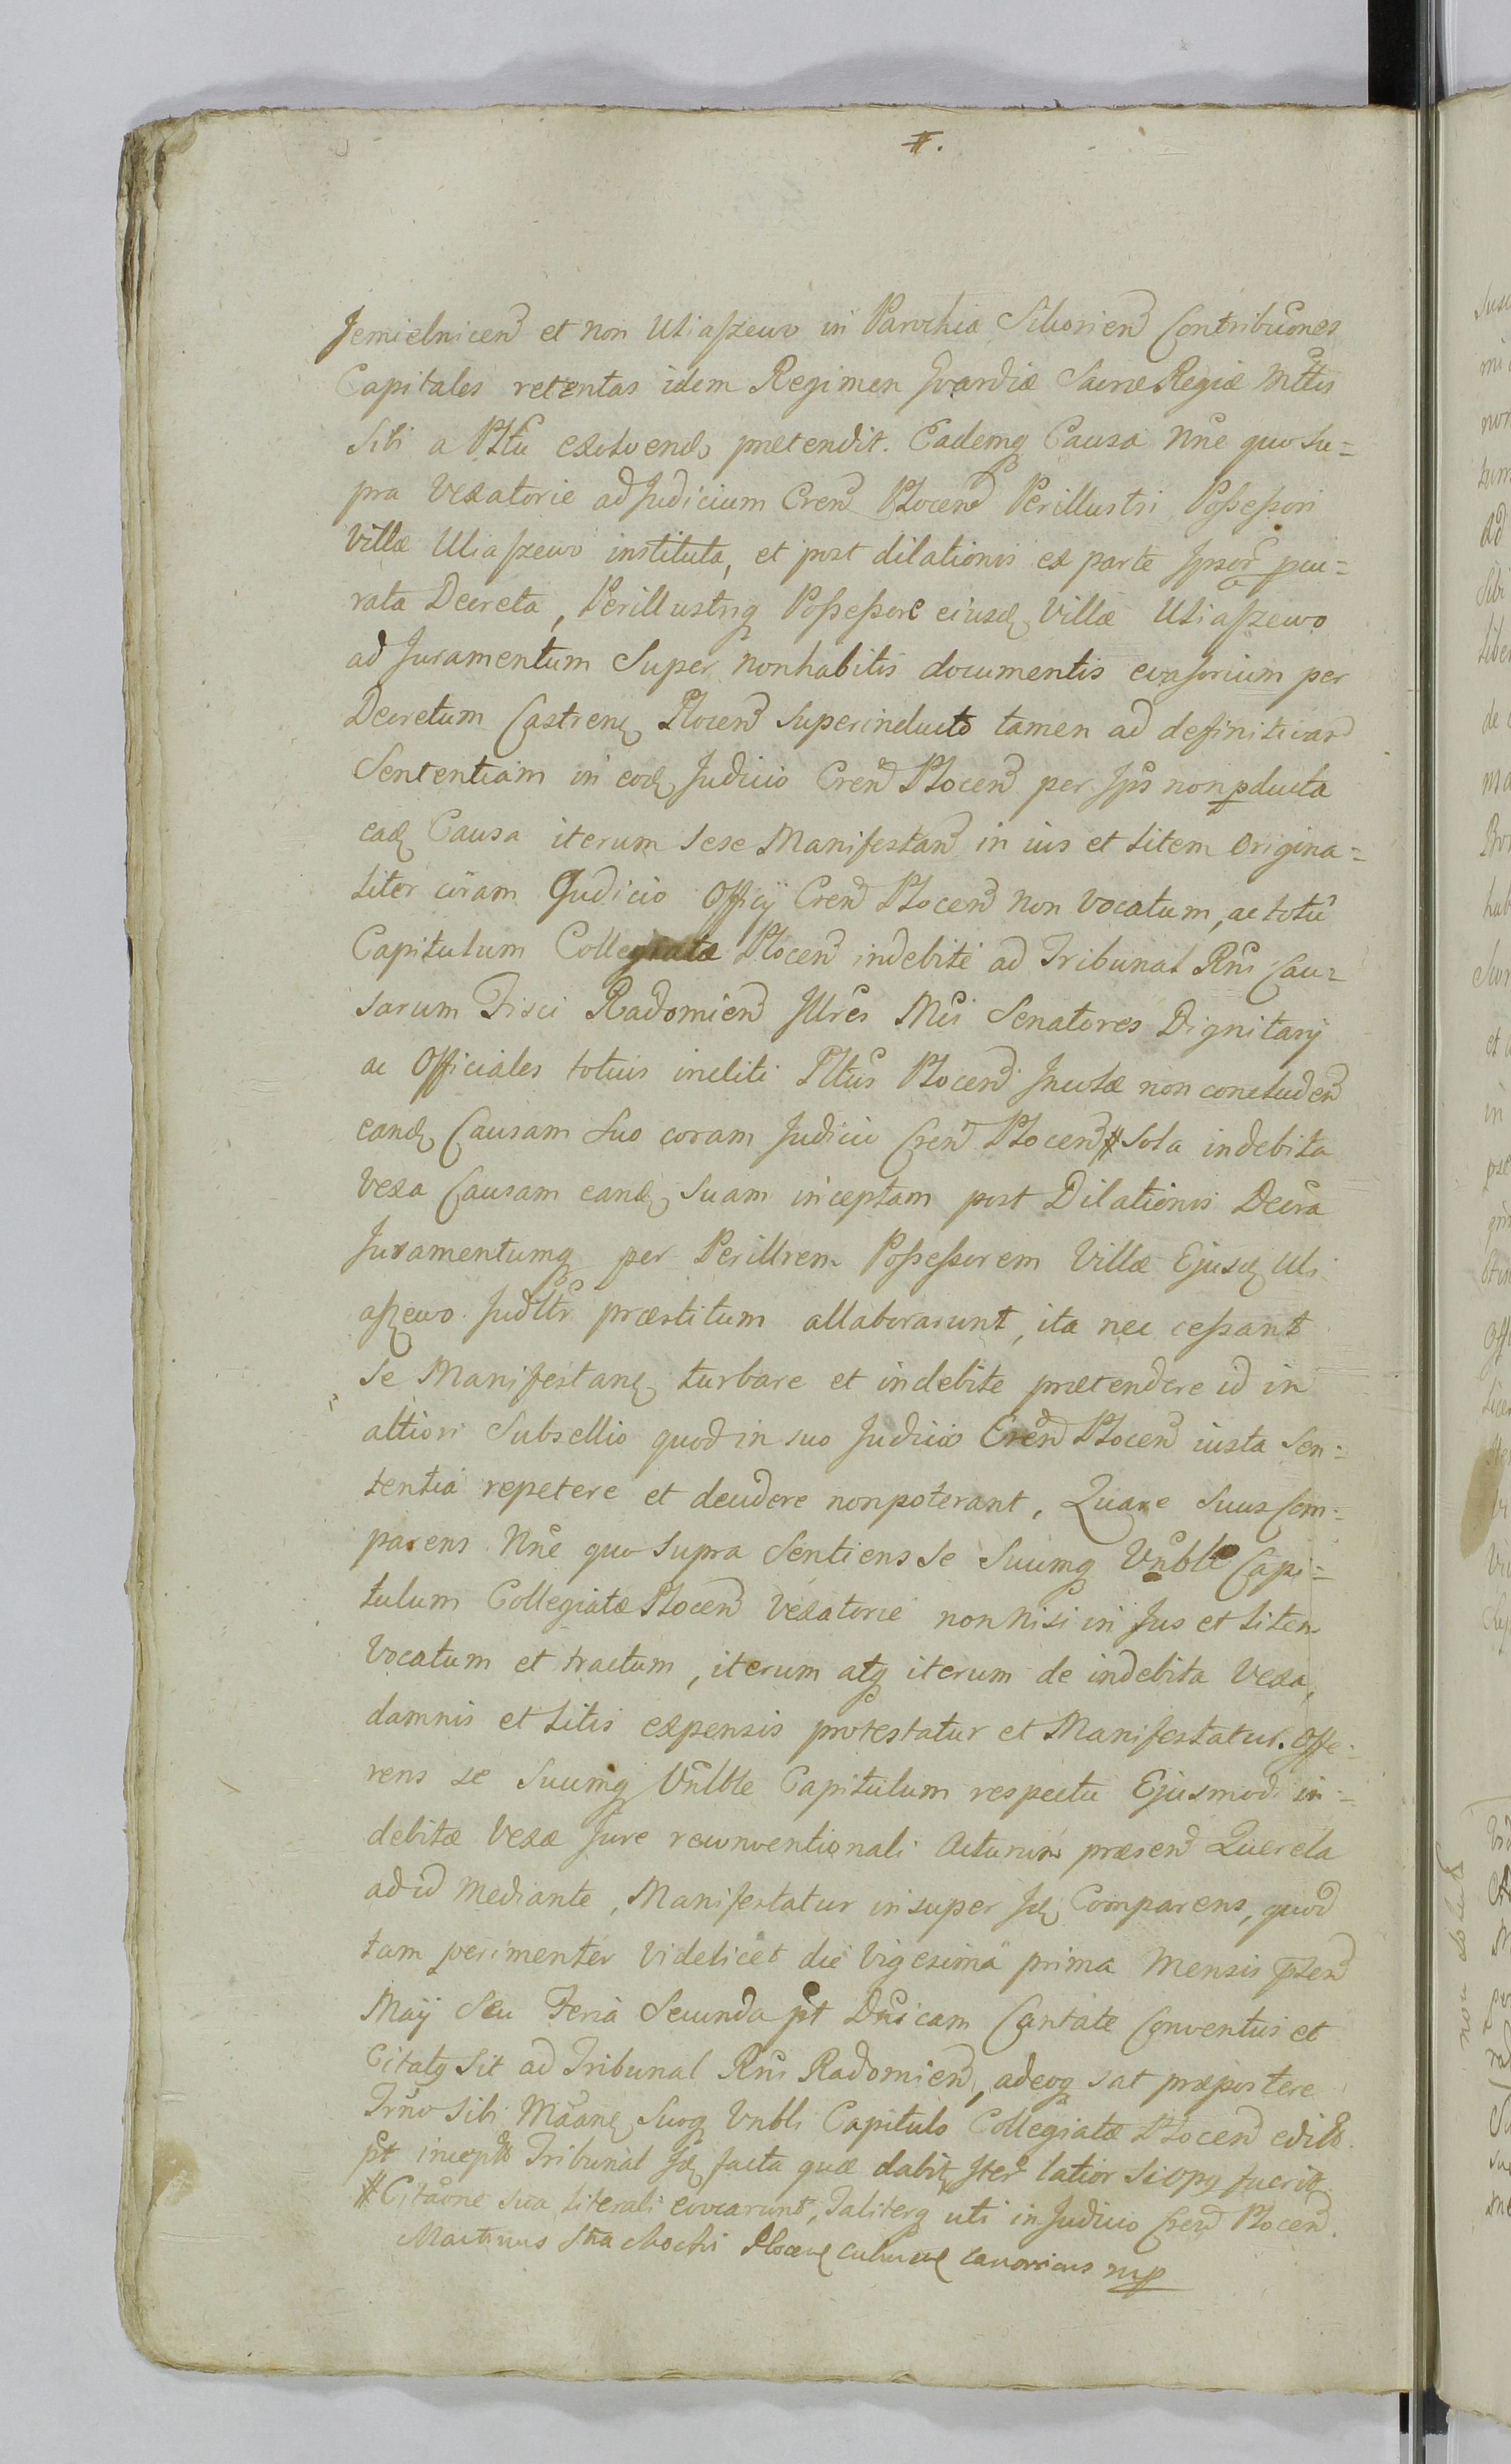 #.
Jemielnicen et non Uliaszewo in Parochia Sikorien Contribuones
Capitales retentas idem Regimen Gvardiæ Sacræ Regiæ Mttis
sibi a Plttu exolvend prætendit. Eademq Causa Nne quo su=
pra vexatorie ad Judicium Cren Plocen Perillustri Possessori
Villæ Uliaszewo instituta, et post dilationis ex parte Ipsor pene=
rata Decreta, Perillustriq Possessore eiusd Villæ Uliaszewo
ad Juramentum super non habitis documentis evasorium per
Decretum Castren Plocen superinducto tamen ad definitivam
Sententiam in eod Judicio Cren Plocen per Ips non pducta
ead Causa iterum sese Manifestan in ius et litem origina=
liter coram Judicio Officij Cren Plocen non vocatum, ac totu
Capitulum Collegiatæ Plocen indebite ad Tribunal Rni Cau=
sarum Fisci Radomien Illres Mci Senatores Dignitarij
ac Officiales totius incliti Plttus Plocen Incolæ non concluden
eand Causam suo coram Judicio Cren Plocen # sola indebita
vexa Causam eand suam inceptam post Dilationis Decra
Juramentumq per Perillrem Possessorem Villæ Ejusd Uli
aszewo Judltr præstitum allaborarunt, ita nec cessant
se Manifestan turbare et indebite prætendere id in
altiori Subsellio quod in suo Judicio Cren Plocen iusta Sen=
tentia repetere et deudere non poterant, Quare suus Com=
parens Nne quo supra sentiens se suumq Vnble Capi=
tulum Collegiatæ Plocen vexatorie non nisi in Jus et litem
vocatum et tractum, iterum atq iterum de indebita vexa,
damnis et litis expensis protestatur et Manifestatur. Offe=
rens se suumq Vnble Capitulum respectu Ejusmodi in=
debitæ vexæ Jure reconventionali acturum præsen Querela
ad id mediante, Manifestatur insuper Id Comparens, quod
tam perimenter videlicet die vigesima prima mensis psen
Maij seu Feria Secunda pt Dnicam Cantate Conventus et
Citatq sit ad Tribunal Rni Radomien, adeoq sat præpostere
Trno sibi Maan suoq Vnbli Capitulo Collegiatæ Plocen edito
pt incepto Tribunal Id facta quæ dabit Iter latior si opq fuerit
# Citaone sua literali evocarunt, Taliterq uti in Judicio Cren Plocen.
Martinus Plocen canonicus mp